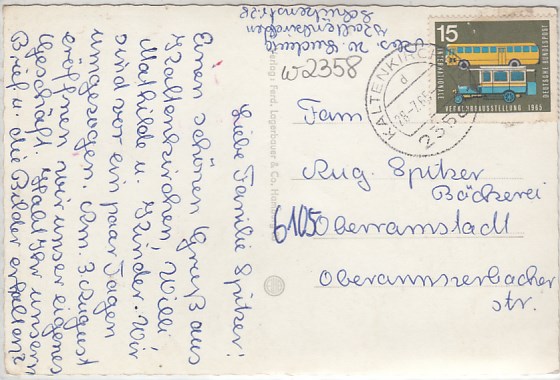 Abs. W. Ludwig
Kaltenkirchen
Schützenstr. 28
W2358
Liebe Familie Spitzer!
Einen schönen Gruß aus
Kaltenkirchen, Willi
Mathilde u. Kinder. Wir
sind vor ein paar Tagen
umgezogen. Am 3. August
eröffnen wir unser eigenes
Geschäft. Habt Ihr unseren
Brief u. die Bilder erhalten?
Verlag: Ferd. Lagerbauer & Co., Hamburg
15
DEUTSCHE BUNDESPOST
VERKEHRSAUSSTELLUNG 1965
KALTENKIRCHEN
d
28.-7.65
2358
Fam
Aug. Spitzer
Bäckerei
6105 Oberramstadt
Oberamserbacher
str.